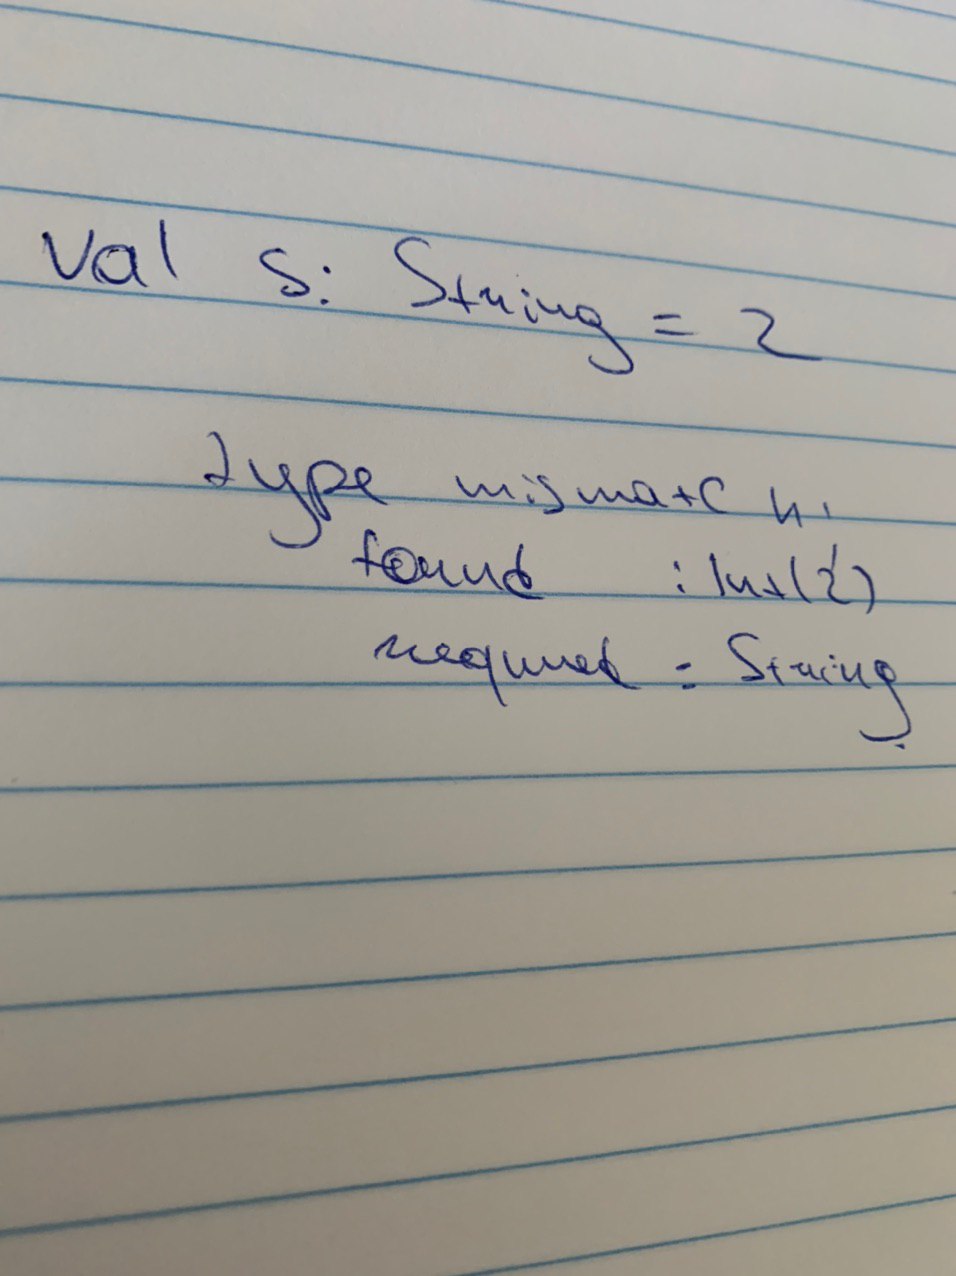 val s: String = 2
type mismatch.
found : Int(2)
required : String